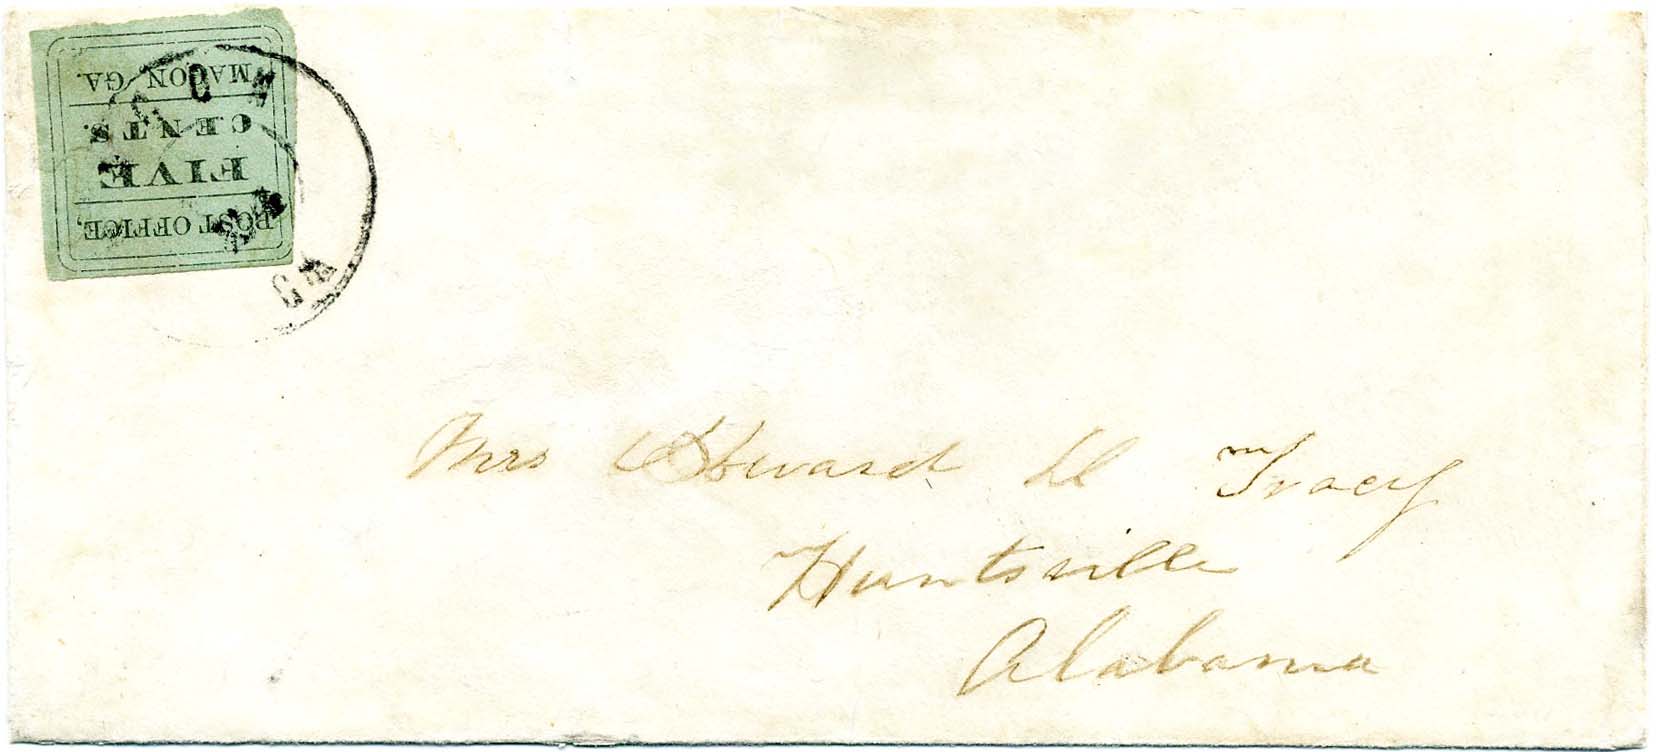 POST OFFICE,
FIVE
CENTS.
MACON GA.
MACON
GA
Mrs Edward D Tracy
Huntsville
Alabama